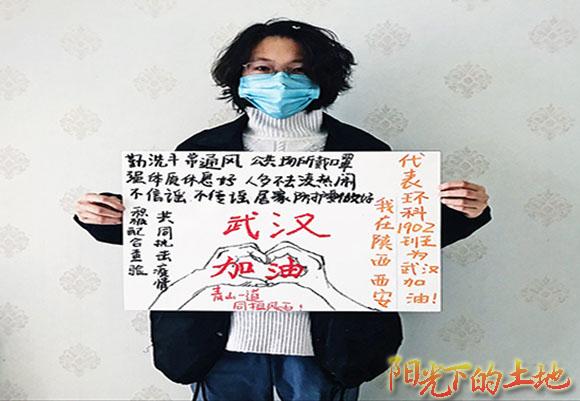 勤洗手常通风 公共场所戴口罩
强体质休息好 人多不去凑热闹
不信谣 不传谣 居家防护要做好
共同抗击疫情
积极配合查验
武汉
加油
青山一道
同担风雨!
代表环科1902班为武汉加油!
我在陕西西安
阳光下的土地